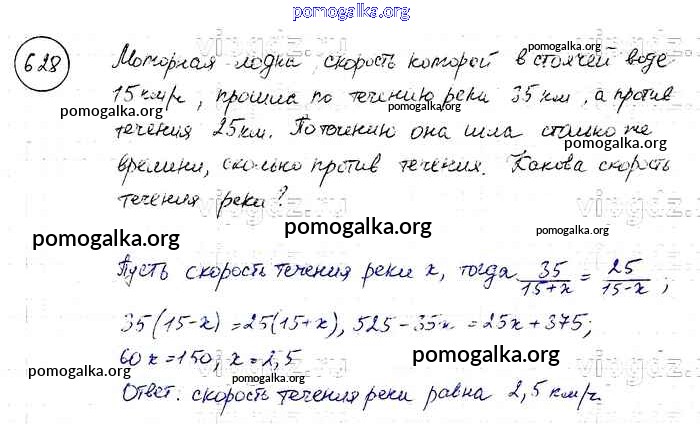 pomogalka.org
628 Моторная лодка, скорость которой в стоячей воде
pomogalka.org
15 км/ч, прошла по течению реки 35 км, а против
pomogalka.org pomogalka.org
течения 25 км. По течению она шла столько же
времени, сколько против течения. Какова скорость
pomogalka.org pomogalka.org
течения реки?
pomogalka.org pomogalka.org
Пусть скорость течения реки x, тогда 35/(15+x) = 25/(15-x);
35(15-x) = 25(15+x), 525-35x = 25x+375;
60x=150; x=2,5
pomogalka.org pomogalka.org pomogalka.org
Ответ. скорость течения реки равна 2,5 км/ч